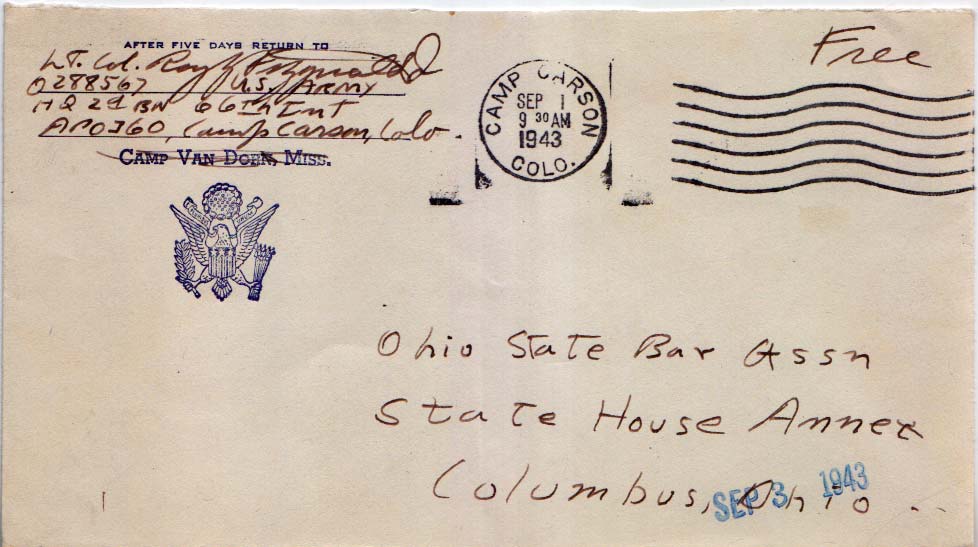 AFTER FIVE DAYS RETURN TO
LT. Col. Roy
O288567 U.S. ARMY
HQ 2d BN 66th Inf
APO 360, Camp Carson, Colo.
CAMP VAN DORN, MISS.
CAMP CARSON
SEP 1
9 30 AM
1943
COLO.
Free
Ohio State Bar Assn
State House Annex
Columbus, Ohio.
SEP 3 1943